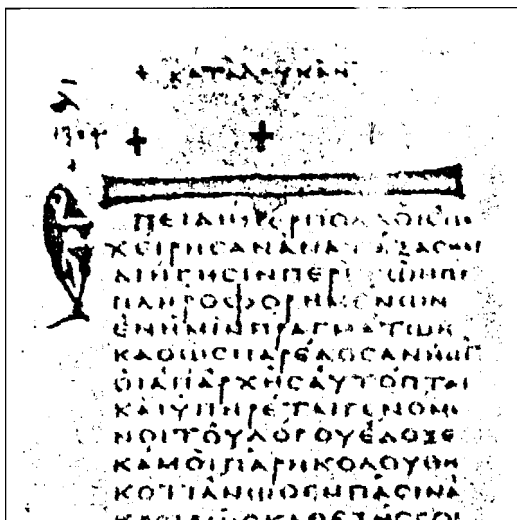 + ΚΑΤΑ ΛΟΥΚΑΝ
+ +
ΕΠΕΙΔΗΠΕΡΠΟΛΛΟΙ
ΧΕΙΡΗϹΑΝΑΝΑΤΑΞΑϹΘΑΙ
ΔΙΗΓΗϹΙΝΠΕΡΙΤΩΝΠΕ
ΠΛΗΡΟΦΟΡΗΜΕΝΩΝ
ΕΝΗΜΙΝΠΡΑΓΜΑΤΩΝ
ΚΑΘΩϹΠΑΡΕΔΟϹΑΝΗΜΙ
ΟΙΑΠΑΡΧΗϹΑΥΤΟΠΤΑΙ
ΚΑΙΥΠΗΡΕΤΑΙΓΕΝΟΜΕ
ΝΟΙΤΟΥΛΟΓΟΥΕΔΟΞΕ
ΚΑΜΟΙΠΑΡΗΚΟΛΟΥΘΗ
ΚΟΤΙΑΝΩΘΕΝΠΑϹΙΝΑ
ΚΡΙΒΩϹΚΑΘΕΞΗϹϹΟΙ